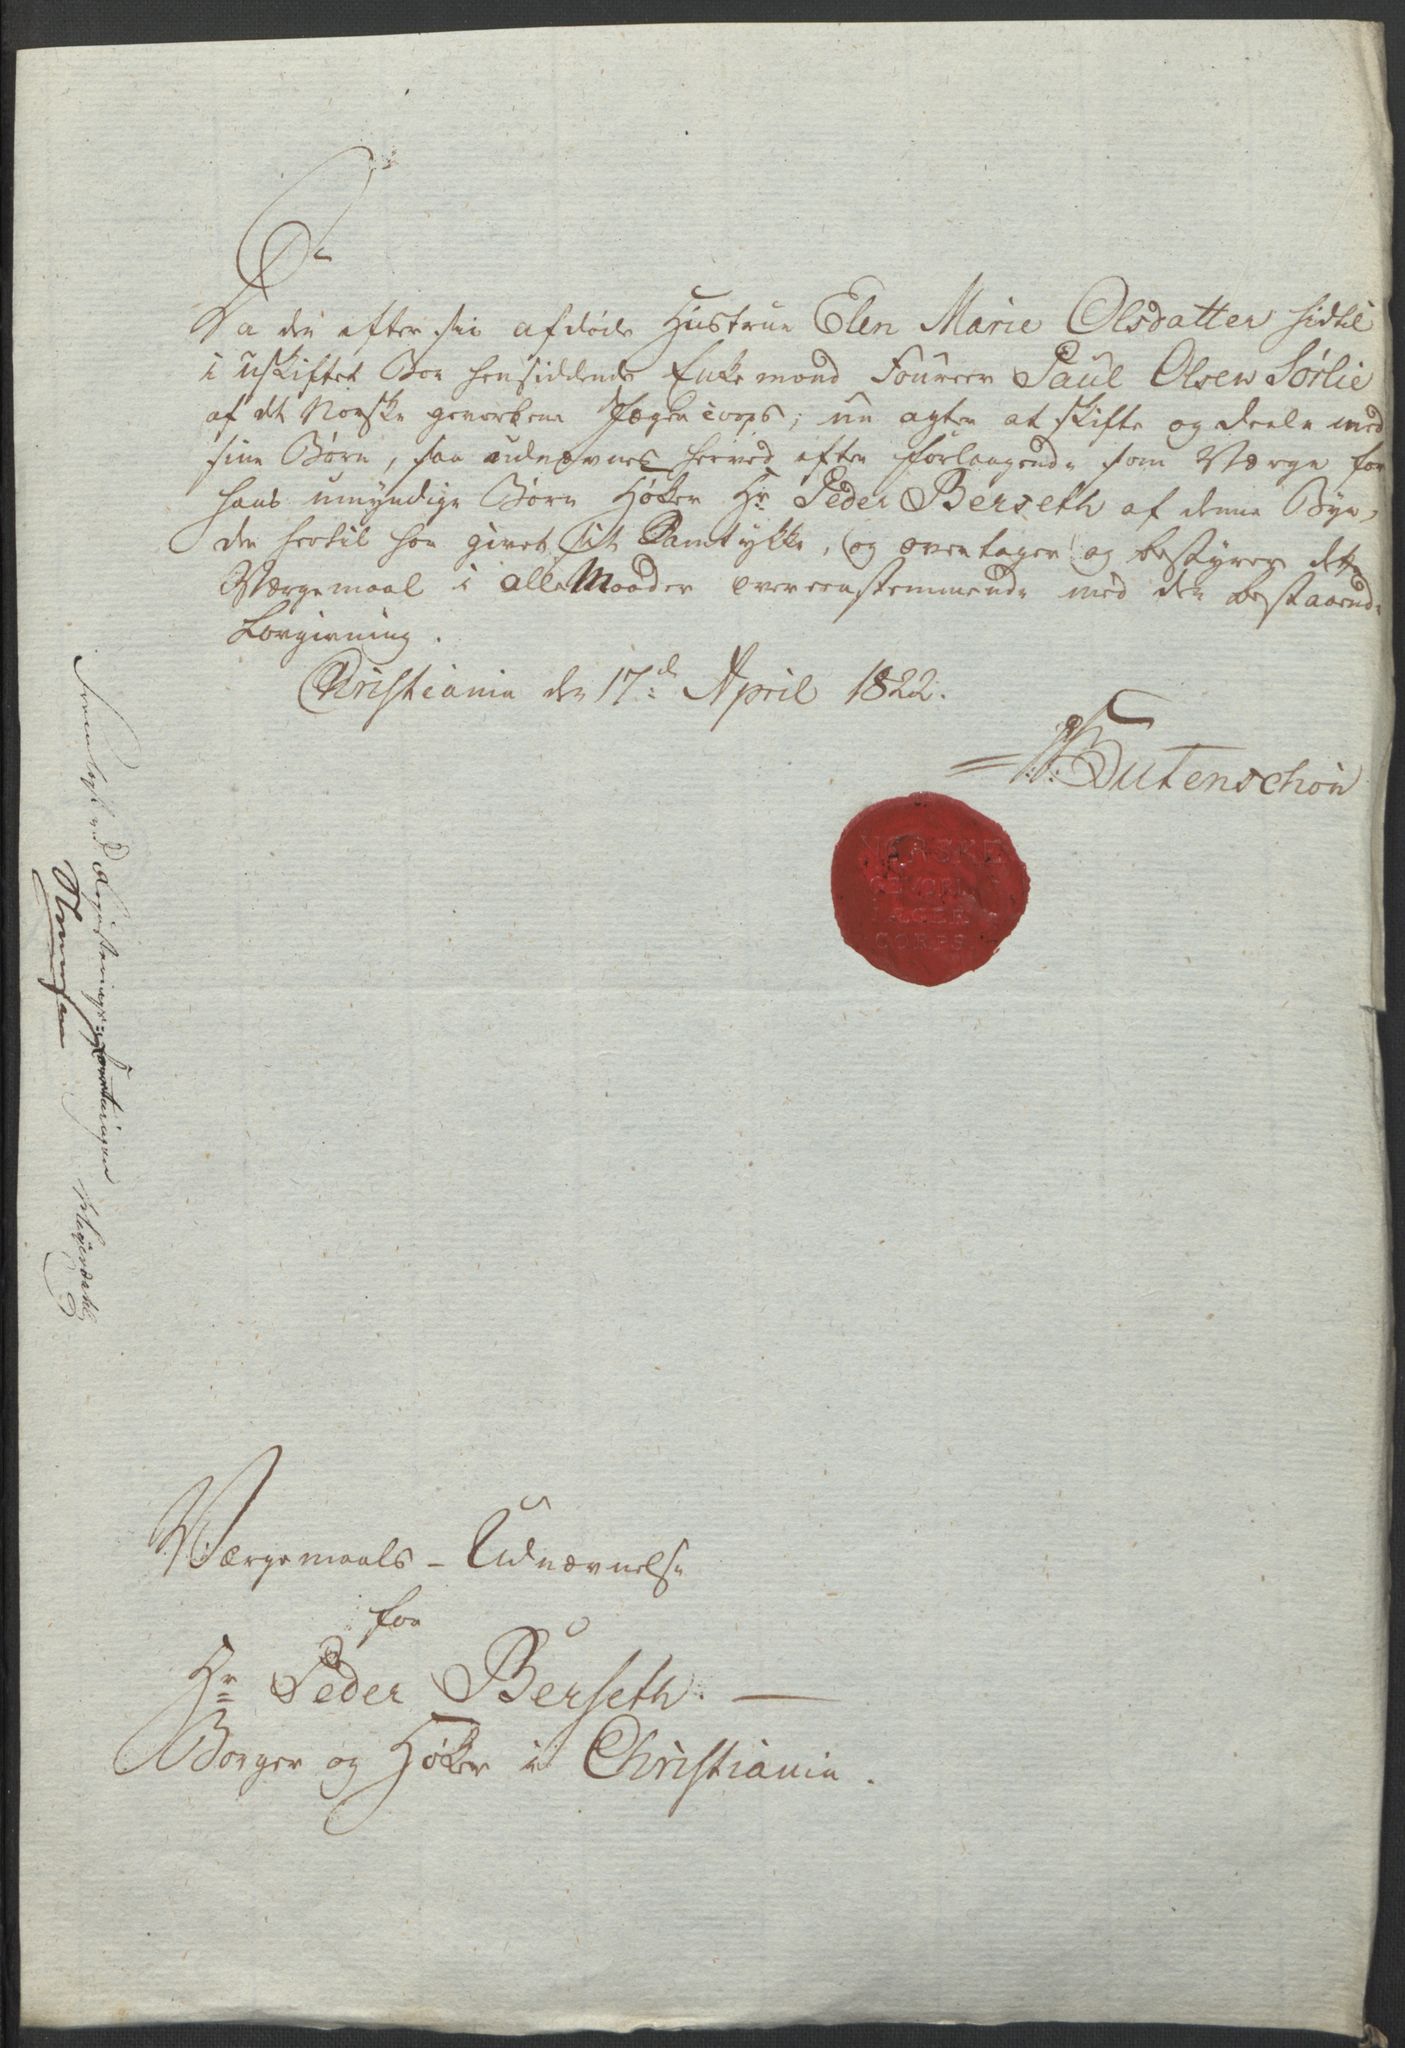 Da den efter sin afdøde Hustrue Elen Marie Olsdatter hidtil
i uskiftet Boe hensiddende Enkemand Foureer Paul Olsen Sørlie
af det Norske gevorbene Jæger Corps, nu agter at skifte og deele med
sine Børn, saa udnævnes herved efter Forlangende som Værge for
hans umyndige Børn Høker Hr Peder Berseth af denne Bye,
der hertil har givet sit Samtykke, og overtager og bestyrer dette
Værgemaal i alle Maader overeensstemmende med den bestaaende
Lovgivning.
Christiania den 17de April 1822.
Butenschøn
NORSKE
GEVORB
JÆGER
CORPS
Fremlagt ved Registerings-Forretningen
Værgemaals-Udnævnelse
for
Hr Peder Berseth. —
Borger og Høker i Christiania.